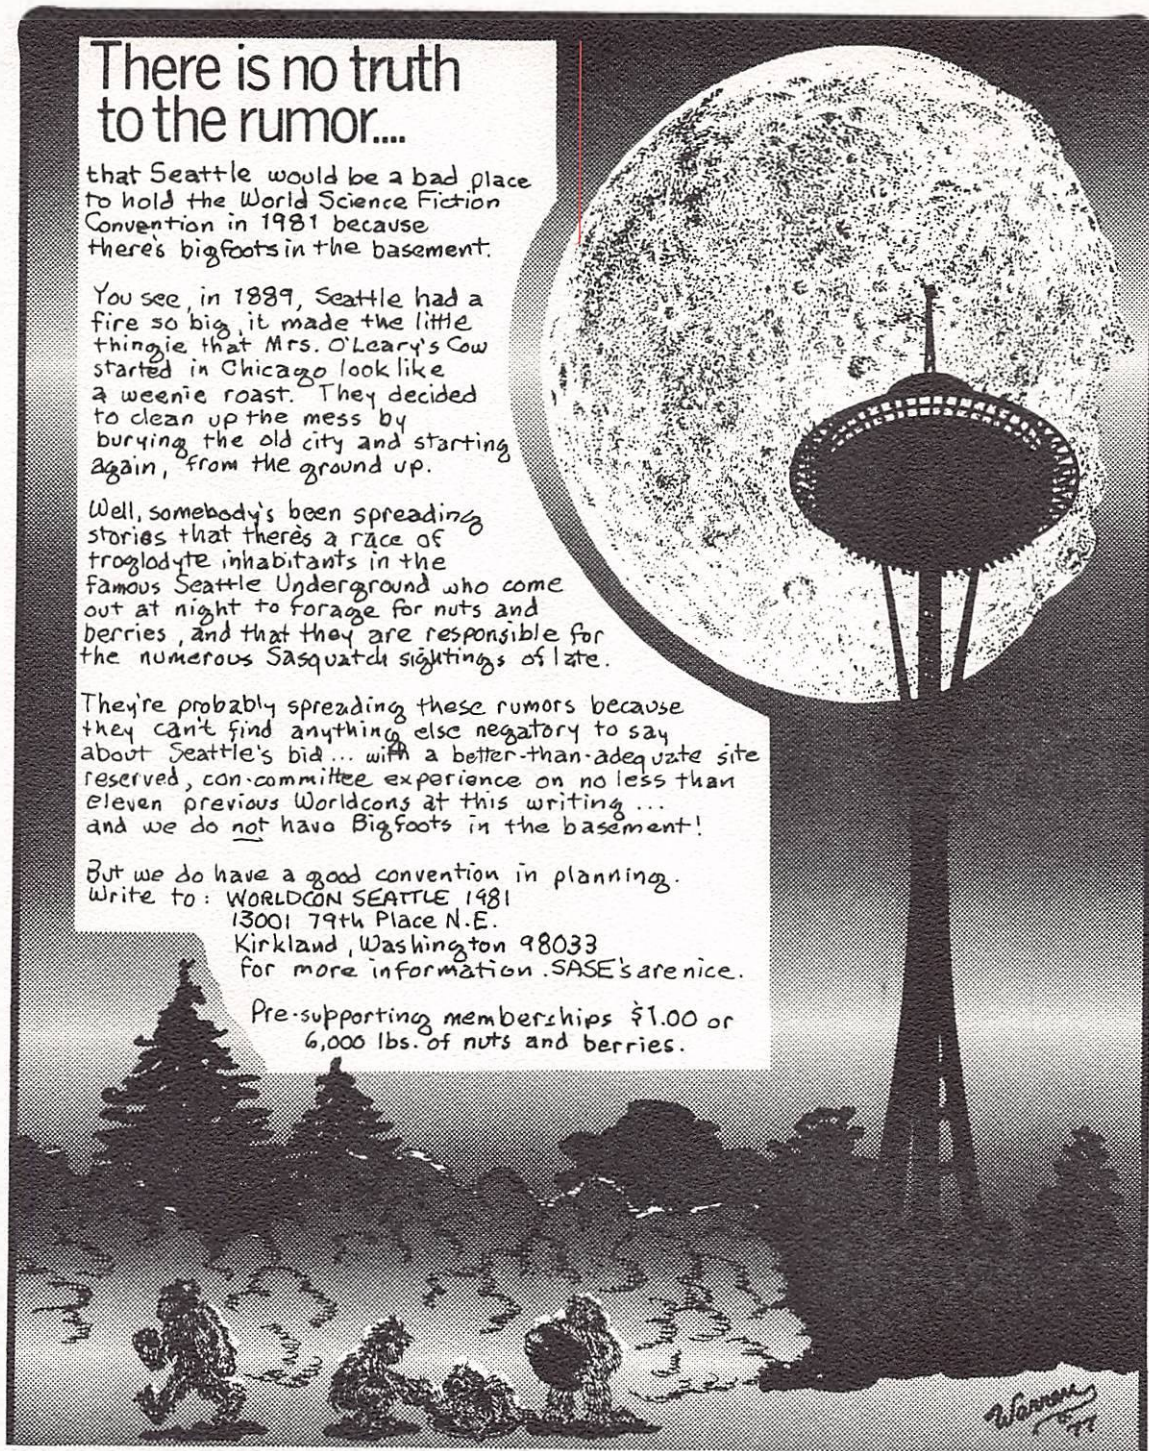 There is no truth
to the rumor....
that Seattle would be a bad place
to hold the World Science Fiction
Convention in 1981 because
there's bigfoots in the basement.
You see, in 1889, Seattle had a
fire so big, it made the little
thingie that Mrs. O'Leary's Cow
started in Chicago look like
a weenie roast. They decided
to clean up the mess by
burying the old city and starting
again, from the ground up.
Well, somebody's been spreading
stories that there's a race of
troglodyte inhabitants in the
famous Seattle Underground who come
out at night to forage for nuts and
berries, and that they are responsible for
the numerous Sasquatch sightings of late.
They're probably spreading these rumors because
they can't find anything else negatory to say
about Seattle's bid... with a better-than-adequate site
reserved, con-committee experience on no less than
eleven previous Worldcons at this writing...
and we do not have Bigfoots in the basement!
But we do have a good convention in planning.
Write to: WORLDCON SEATTLE 1981
13001 79th Place N.E.
Kirkland, Washington 98033
for more information. SASE's are nice.
Pre-supporting memberships $1.00 or
6,000 lbs. of nuts and berries.
Warren
'77